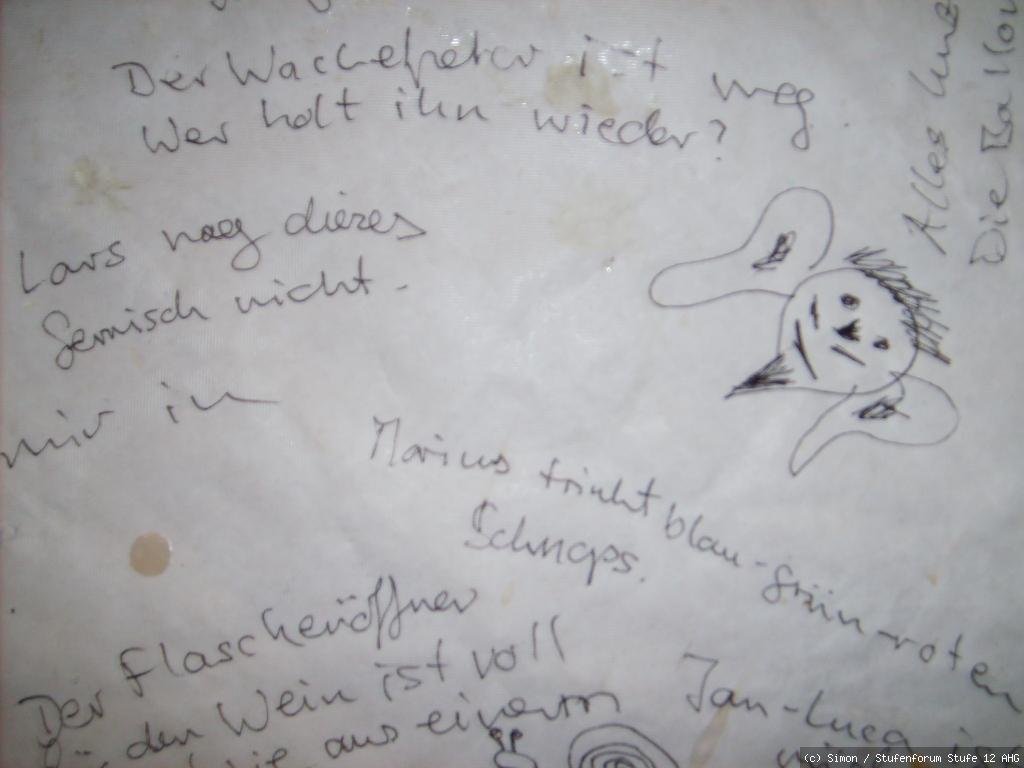 Der Wachepeter ist weg.
Wer holt ihn wieder?
Alles
Die Ballon
Lars mag dieses
Gemisch nicht.
mir in
Marius trinkt blau-grün-roten
Schnaps.
Der Flaschenöffner
für den Wein ist voll
aus einem
Jan-Lucg
(c) Simon / Stufenforum Stufe 12 AHG